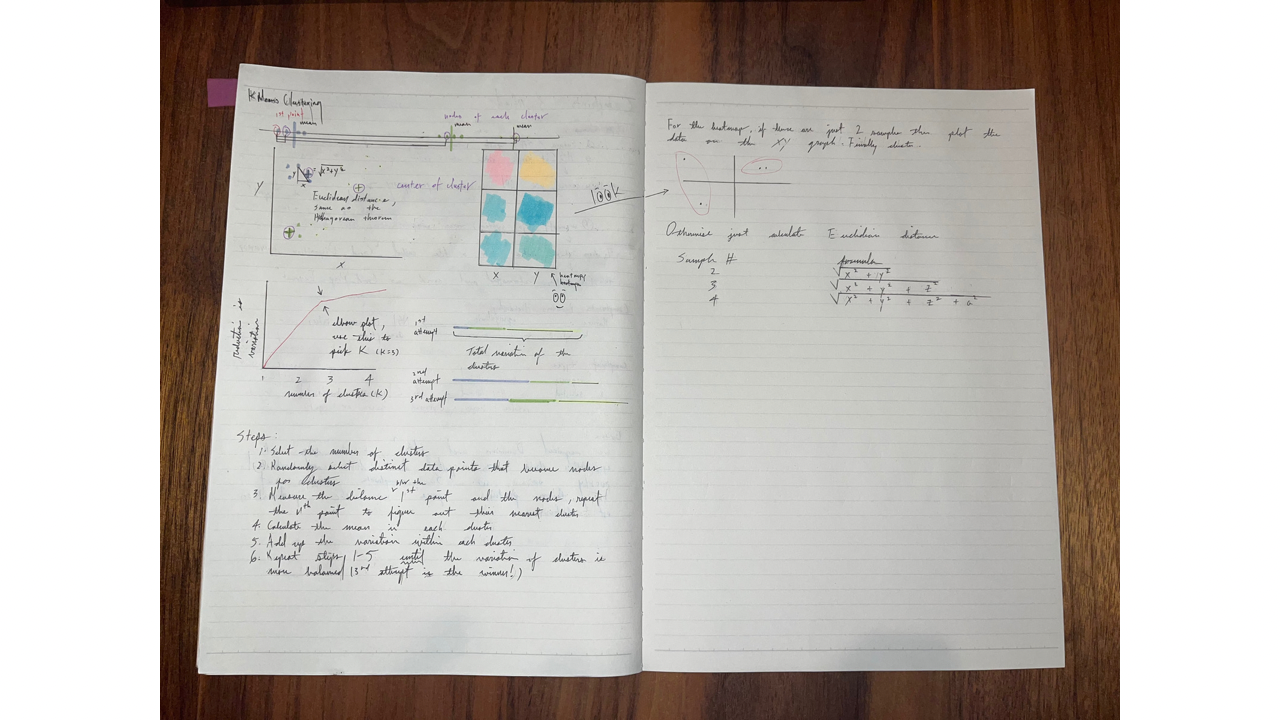 K Means Clustering
1st point
mean
nodes of each cluster
mean
mean
Y
y
x
= √x²+y²
Euclidean distance,
same as the
Pythagorean theorem
X
center of cluster
X Y
heatmap
look
Reduction in
variation
elbow plot,
use this to
pick K (K=3)
1 2 3 4
number of clusters (K)
1st
attempt
Total variation of the
clusters
2nd
attempt
3rd attempt
Steps:
1. Select the number of clusters
2. Randomly select distinct data points that become nodes
for clusters
b/w the
3. Measure the distance 1st point and the nodes, repeat
the nth point to figure out their nearest cluster
4. Calculate the mean in each cluster
5. Add up the variation within each cluster
6. Repeat steps 1-5 until the variation of clusters is
more balanced (3rd attempt is the winner!)
For the heatmap, if there are just 2 samples then plot the
data on the XY graph. Finally cluster.
Otherwise just calculate Euclidian distance
Sample # formula
2 √x² + y²
3 √x² + y² + z²
4 √x² + y² + z² + a²